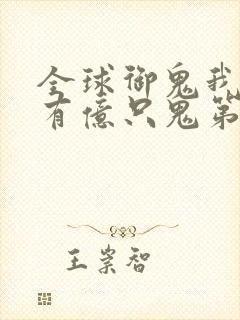 全球御鬼我
有億只鬼第
王崇智